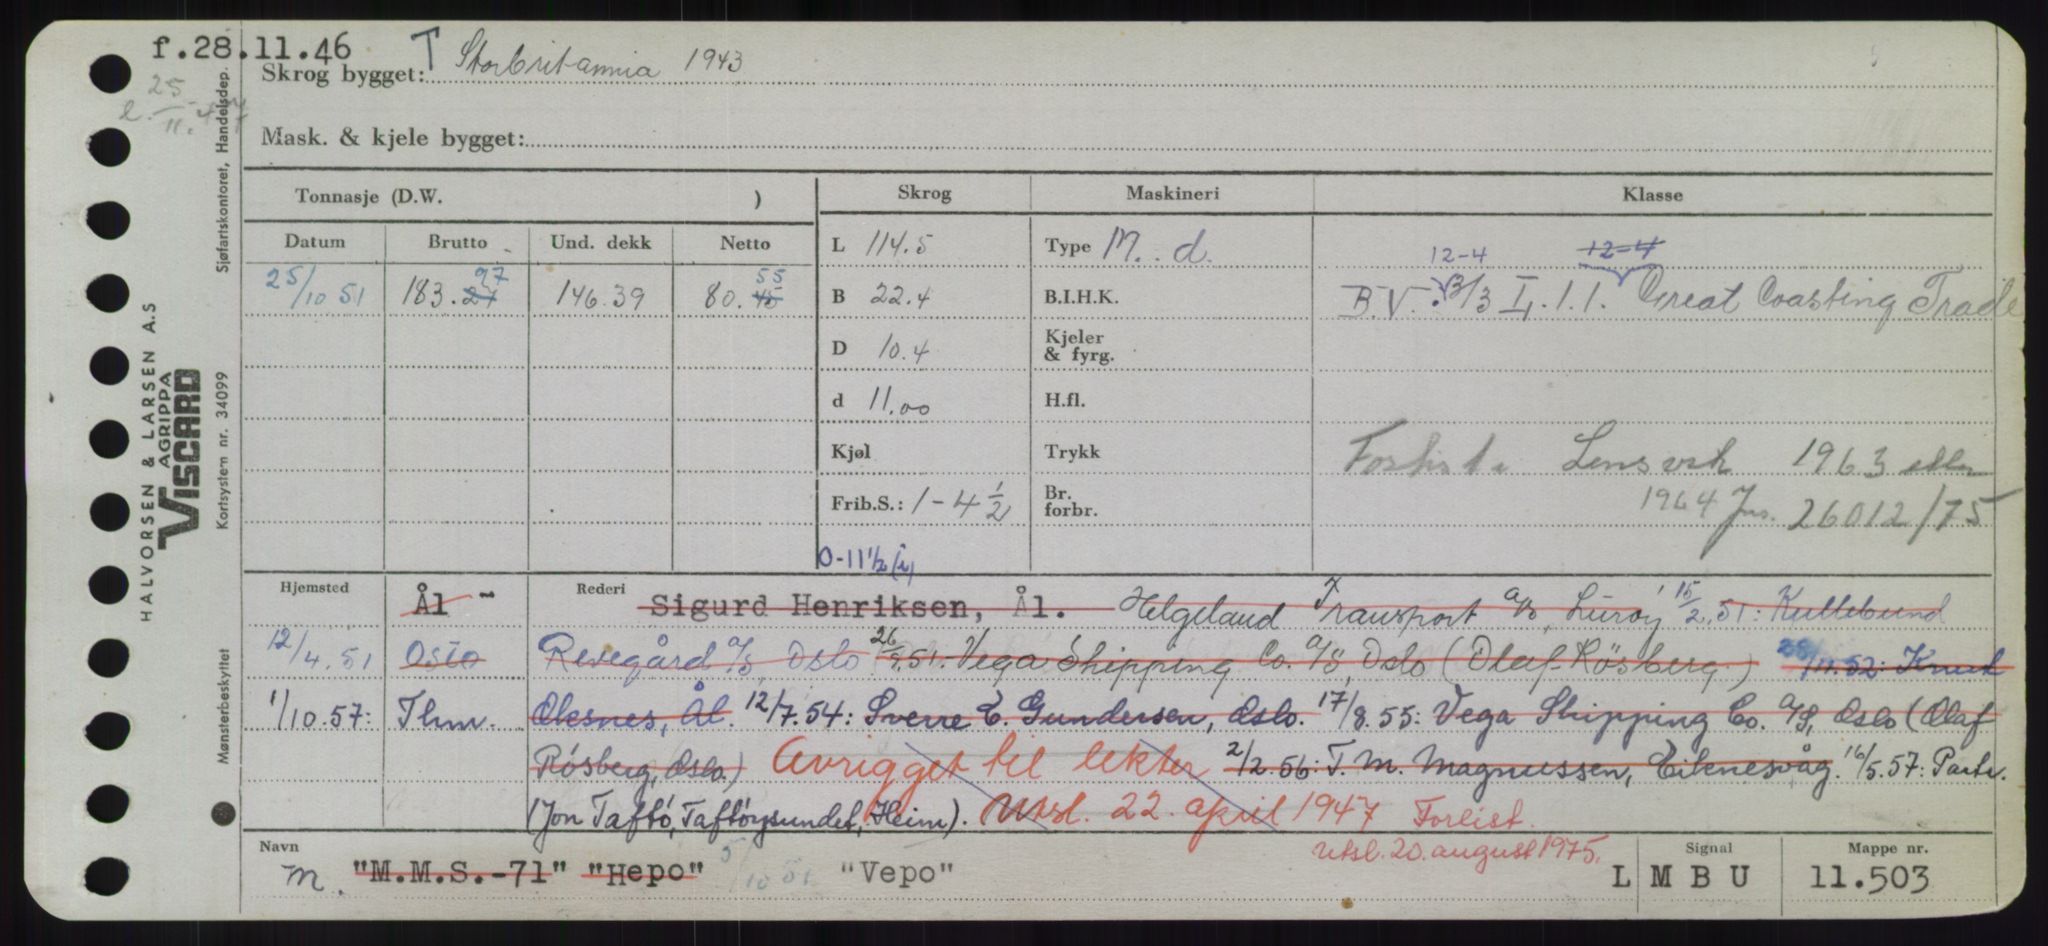 f.28.11.46
T
Skrog bygget: Storbritannia 1943
25
Mask. & kjele bygget:
Sjøfartskontoret, Handelsdep.
HALVORSEN & LARSEN A.S
AGRIPPA
VISCARD
Kortsystem nr. 34099
Mønsterbeskyttet
Tonnasje (D.W. ) Skrog Maskineri Klasse
Datum Brutto Und. dekk Netto
L 114.5 Type M. d.
12-4 12-4
97 55
25/10 51 183.27 146.39 80.45
B 22.4 B.I.H.K.
B.V. 3/3 I. 1.1. Great Coasting Trade
D 10.4 Kjeler
& fyrg.
d 11.00 H.fl.
Kjøl Trykk Forlist. 1963 eller
Frib.S.: 1-4 1/2 Br.
forbr.
1964 Jnr. 26012/75
0-11 1/2 (i)
Hjemsted Ål - Rederi Sigurd Henriksen, Ål. Helgeland Transport A/S, Lurøy 15/2.51: Kullebund
12/4.51 Oslo Revegård A/S, Oslo 26/9.51. Vega Shipping Co. A/S, Oslo (Olaf Rösberg.) 28/11.52: Knut
1/10.57: Thm. Olesnes, Ål. 12/7.54: Sverre E. Gundersen, Oslo. 17/8.55: Vega Shipping Co. A/S, Oslo (Olaf
Rösberg, Oslo.) Avrigget til lekter 2/2.56: T. M. Magnussen, Eiknesvåg. 16/5.57: Partr.
(Jon Taftö, Taftöysundet, Heim). Utsl. 22. april 1947 Forlist.
utsl. 20. august 1975.
Navn m. "M.M.S.-71" "Hepo" 5/10 51 "Vepo"
Signal L M B U
Mappe nr. 11.503